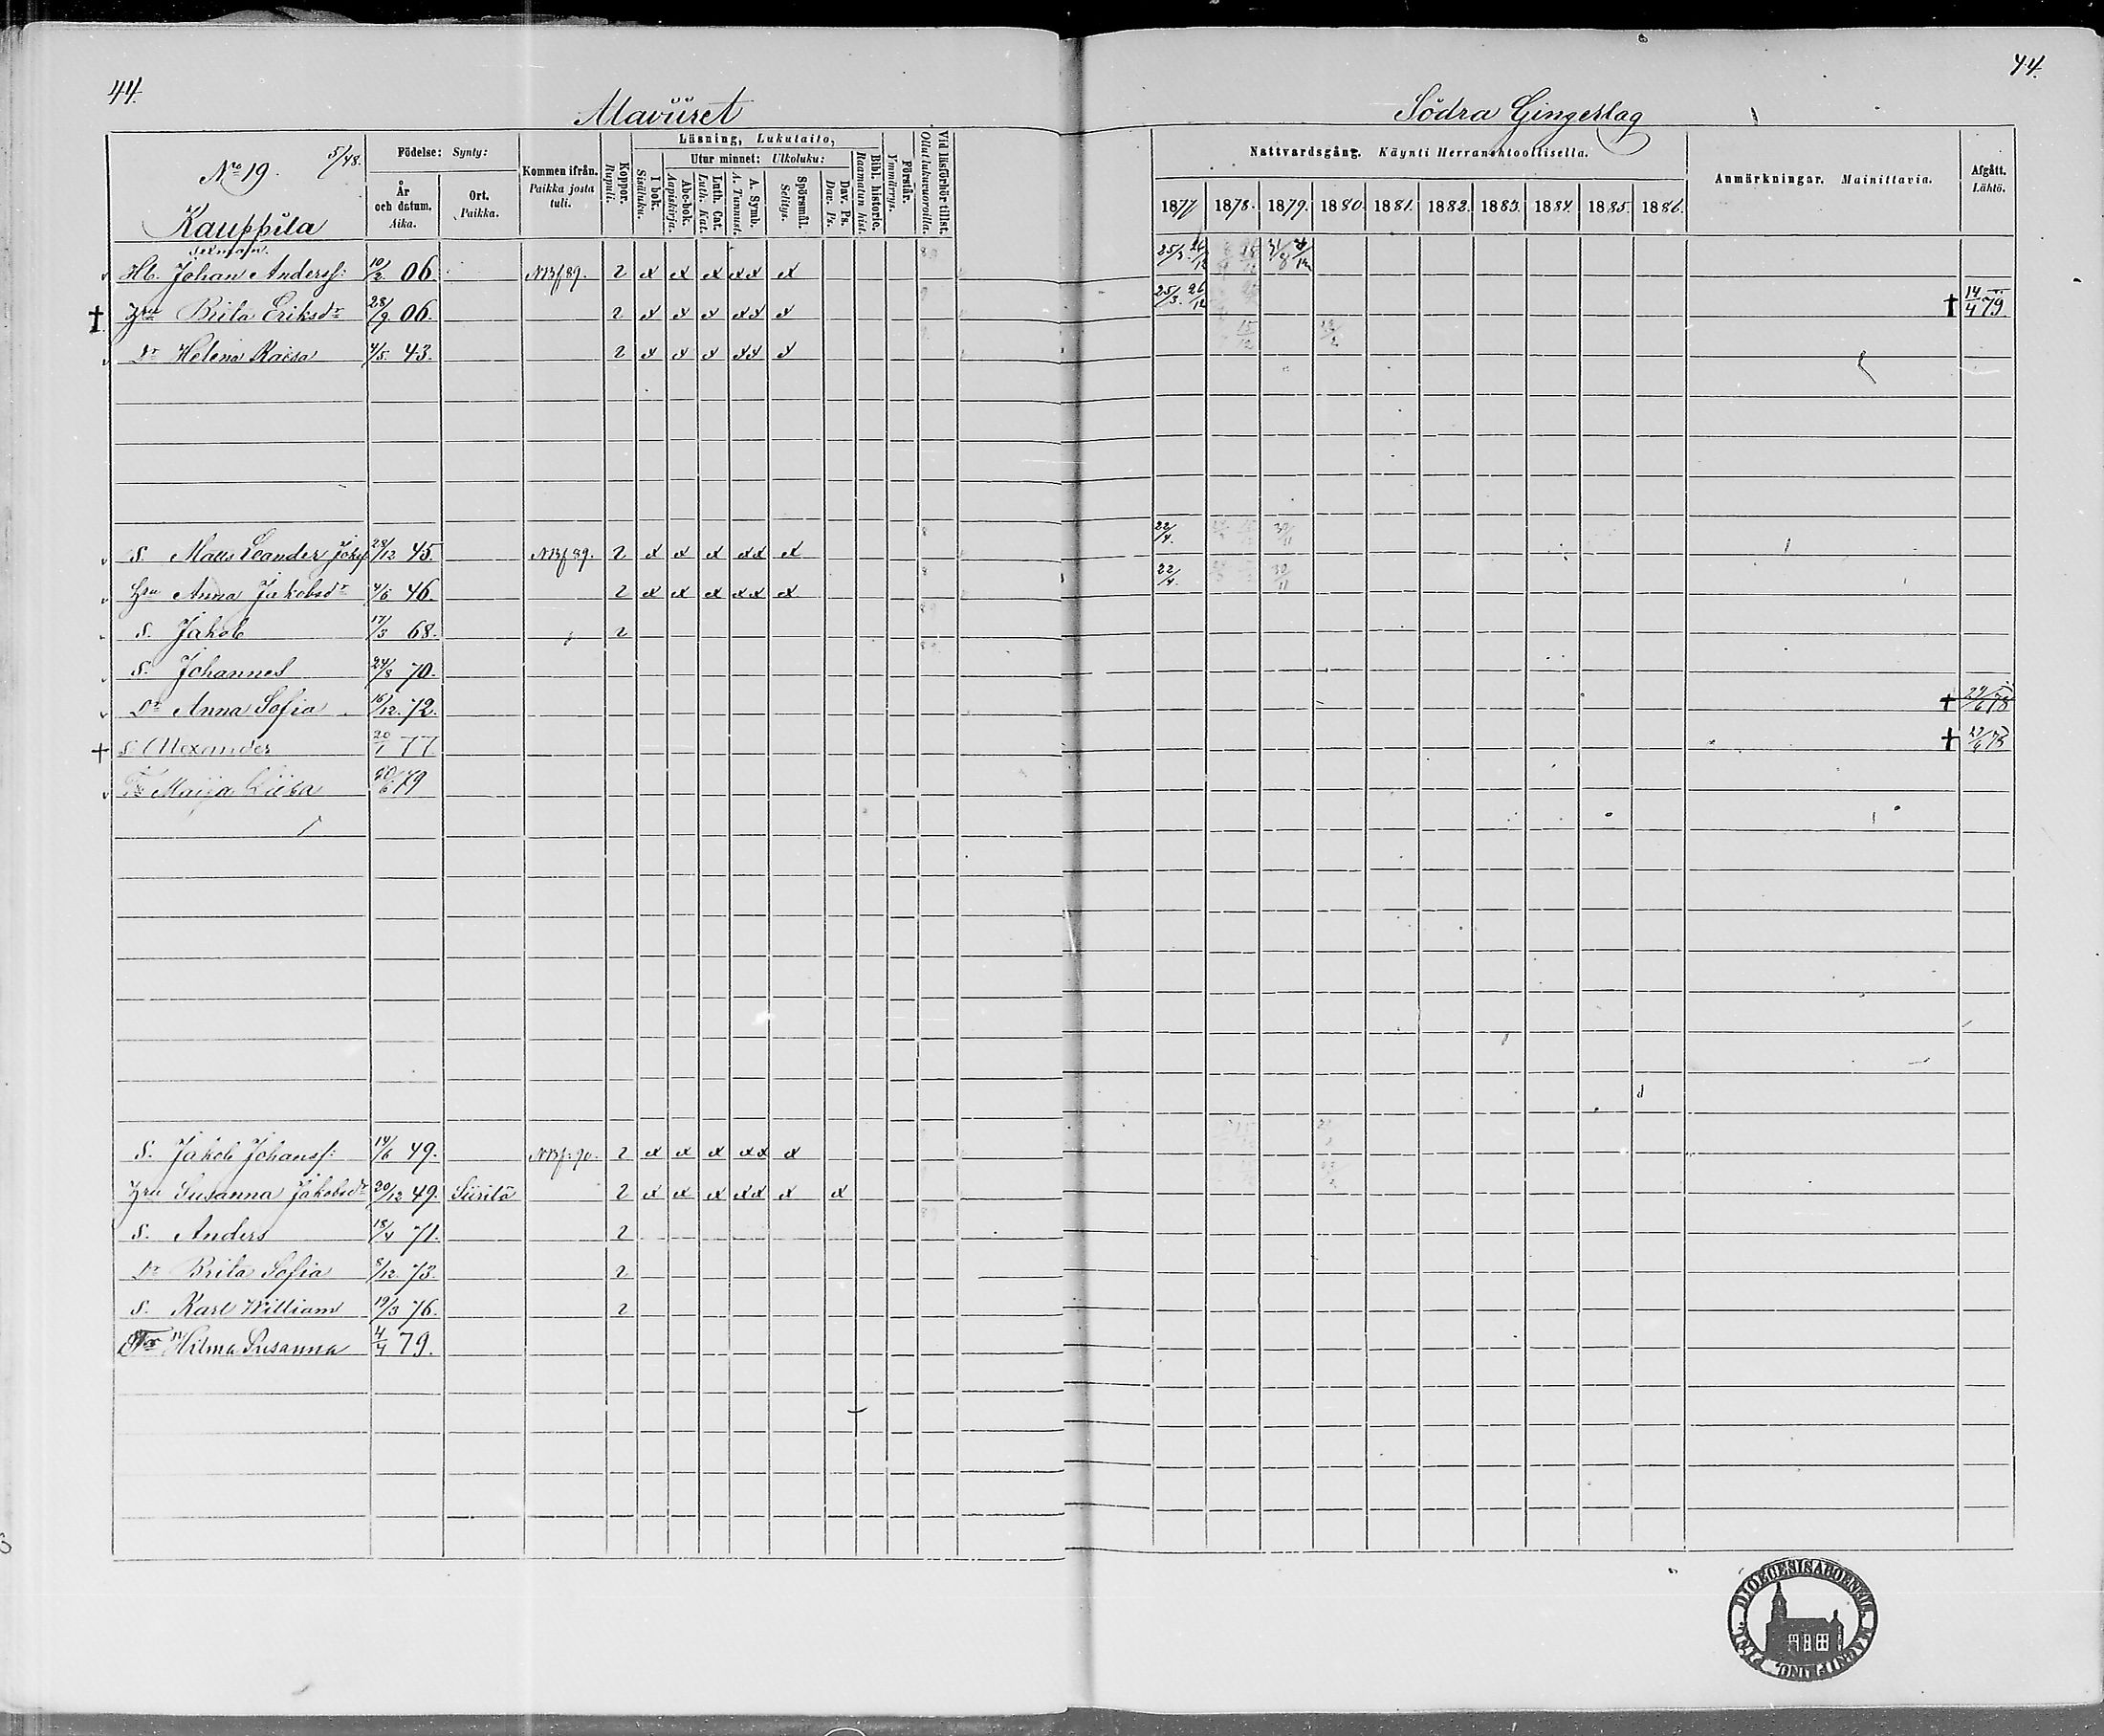 44.
44.
Alaviiret
Södra Gingerslag
Nro 19. 5/48.
Kauppila
Födelse: Synty:
År och datum. Aika.
Ort. Paikka.
Kommen ifrån. Paikka josta tuli.
Koppor. Rupuli.
Läsning, Lukutaito,
I bok. Sisäluku.
Utur minnet: Ulkoluku:
Abc-bok. Aapiskirja.
Luth. Cat. Luth. Kat.
A. Symb. A. Tunnust.
Spörsmål. Selitys.
Dav. Ps. Dav. Ps.
Bibl. historie. Raamatun hist.
Förstår. Ymmärrys.
Vid läsförhör tillst. Ollut lukuvuoroilla.
Nattvardsgång. Käynti Herranehtoollisella.
1877 1878. 1879. 1880. 1881. 1882. 1883. 1884. 1885. 1886.
Anmärkningar. Mainittavia.
Afgått. Lähtö.
Hb. Johan Anderss: 10/2 06. NB f 89. 2 x x x x x x 25/3. 26/12
† Hru Brita Eriksdr 28/9 06. 2 x x x x x x 25/3. 26/12 † 14/4 79.
Dr Helena Kaisa 4/5 43. 2 x x x x x x
S. Matts Leander Johss 28/12 45. NB f 89. 2 x x x x x x 22/4. 30/11
Hru Anna Jakobsdr 4/6 46. 2 x x x x x x 22/4. 30/11
S. Jakob 17/3 68. 2
S. Johannes 24/8 70.
Dr Anna Sofia 16/12. 72. †
† S. Alexander 20/1 77 †
Tr Maija Liisa 79
S. Jakob Johanss: 14/6 49. NB f. 90. 2 x x x x x x
Hru Susanna Jakobsdr 20/12 49. Siirilä 2 x x x x x x x
S. Anders 18/4 71. 2
Dr Brita Sofia 8/12. 73. 2
S. Karl William 19/3 76. 2
Tr Hilma Susanna 4/4 79.